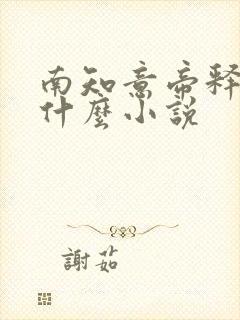 南知意帝釋
什麼小說
謝茹